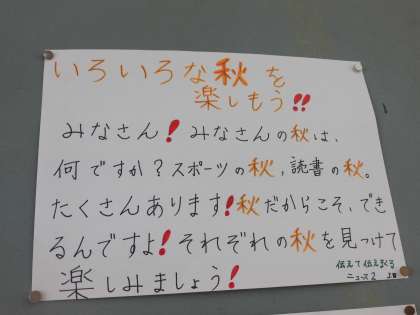 いろいろな秋を
楽しもう!!
みなさん!みなさんの秋は、
何ですか?スポーツの秋,読書の秋。
たくさんあります!秋だからこそ、でき
るんですよ!それぞれの秋を見つけて
楽しみましょう!
伝えて伝えまくる
ニュース2